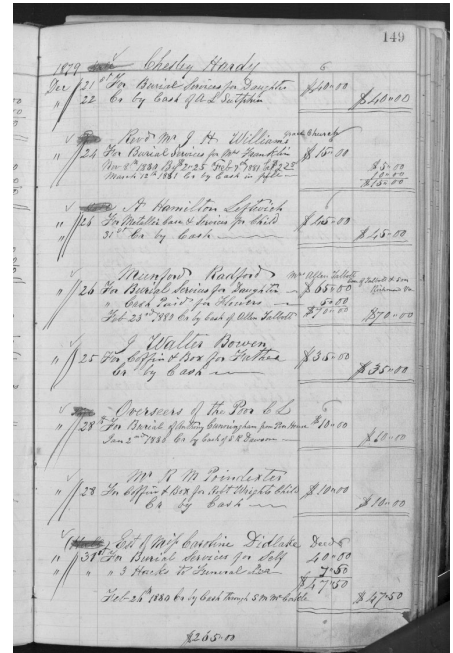 149
1879 Chesley Hardy
Dec 21st For Burial Services for Daughter $40.00
" 22 Cr by Cash of A L Sutphin $40.00
Revd Mr J H Williams Grace Church
" 24 For Burial Services for Mr Franklin $15.00
1880 Feb 1881 $5.00
March 12th 1881 Cr by Cash in full 10.00
$15.00
A Hamilton Leftwich
" 26 For Metallic Case & Services for Child $45.00
" 31st Cr by Cash $45.00
Munford Radford Mr Allen Talbott
" 26 For Burial Services for Daughter $65.00 of Talbott & Son
" Cash Paid for Flowers 5.00 Richmond Va
Feb 23rd 1880 Cr by Cash of Allen Talbott $70.00 $70.00
J Walter Bowen
" 25 For Coffin & Box for Father $35.00
Cr by Cash $35.00
Overseers of the Poor C L
" 28th For Burial of Cunningham from Poor House $10.00
Jan 2nd 1880 Cr by Cash of S R Dawson $10.00
Mr R M Poindexter
" 28 For Coffin & Box for Robt Wrights Child $10.00
" Cr by Cash $10.00
Est of Miss Caroline Didlake Decd
" 31st For Burial Services for Self 40.00
" " " 3 Hacks to Funeral 7.50
$47.50
Feb 26th 1880 Cr by Cash through S M McCorkle $47.50
$265.00